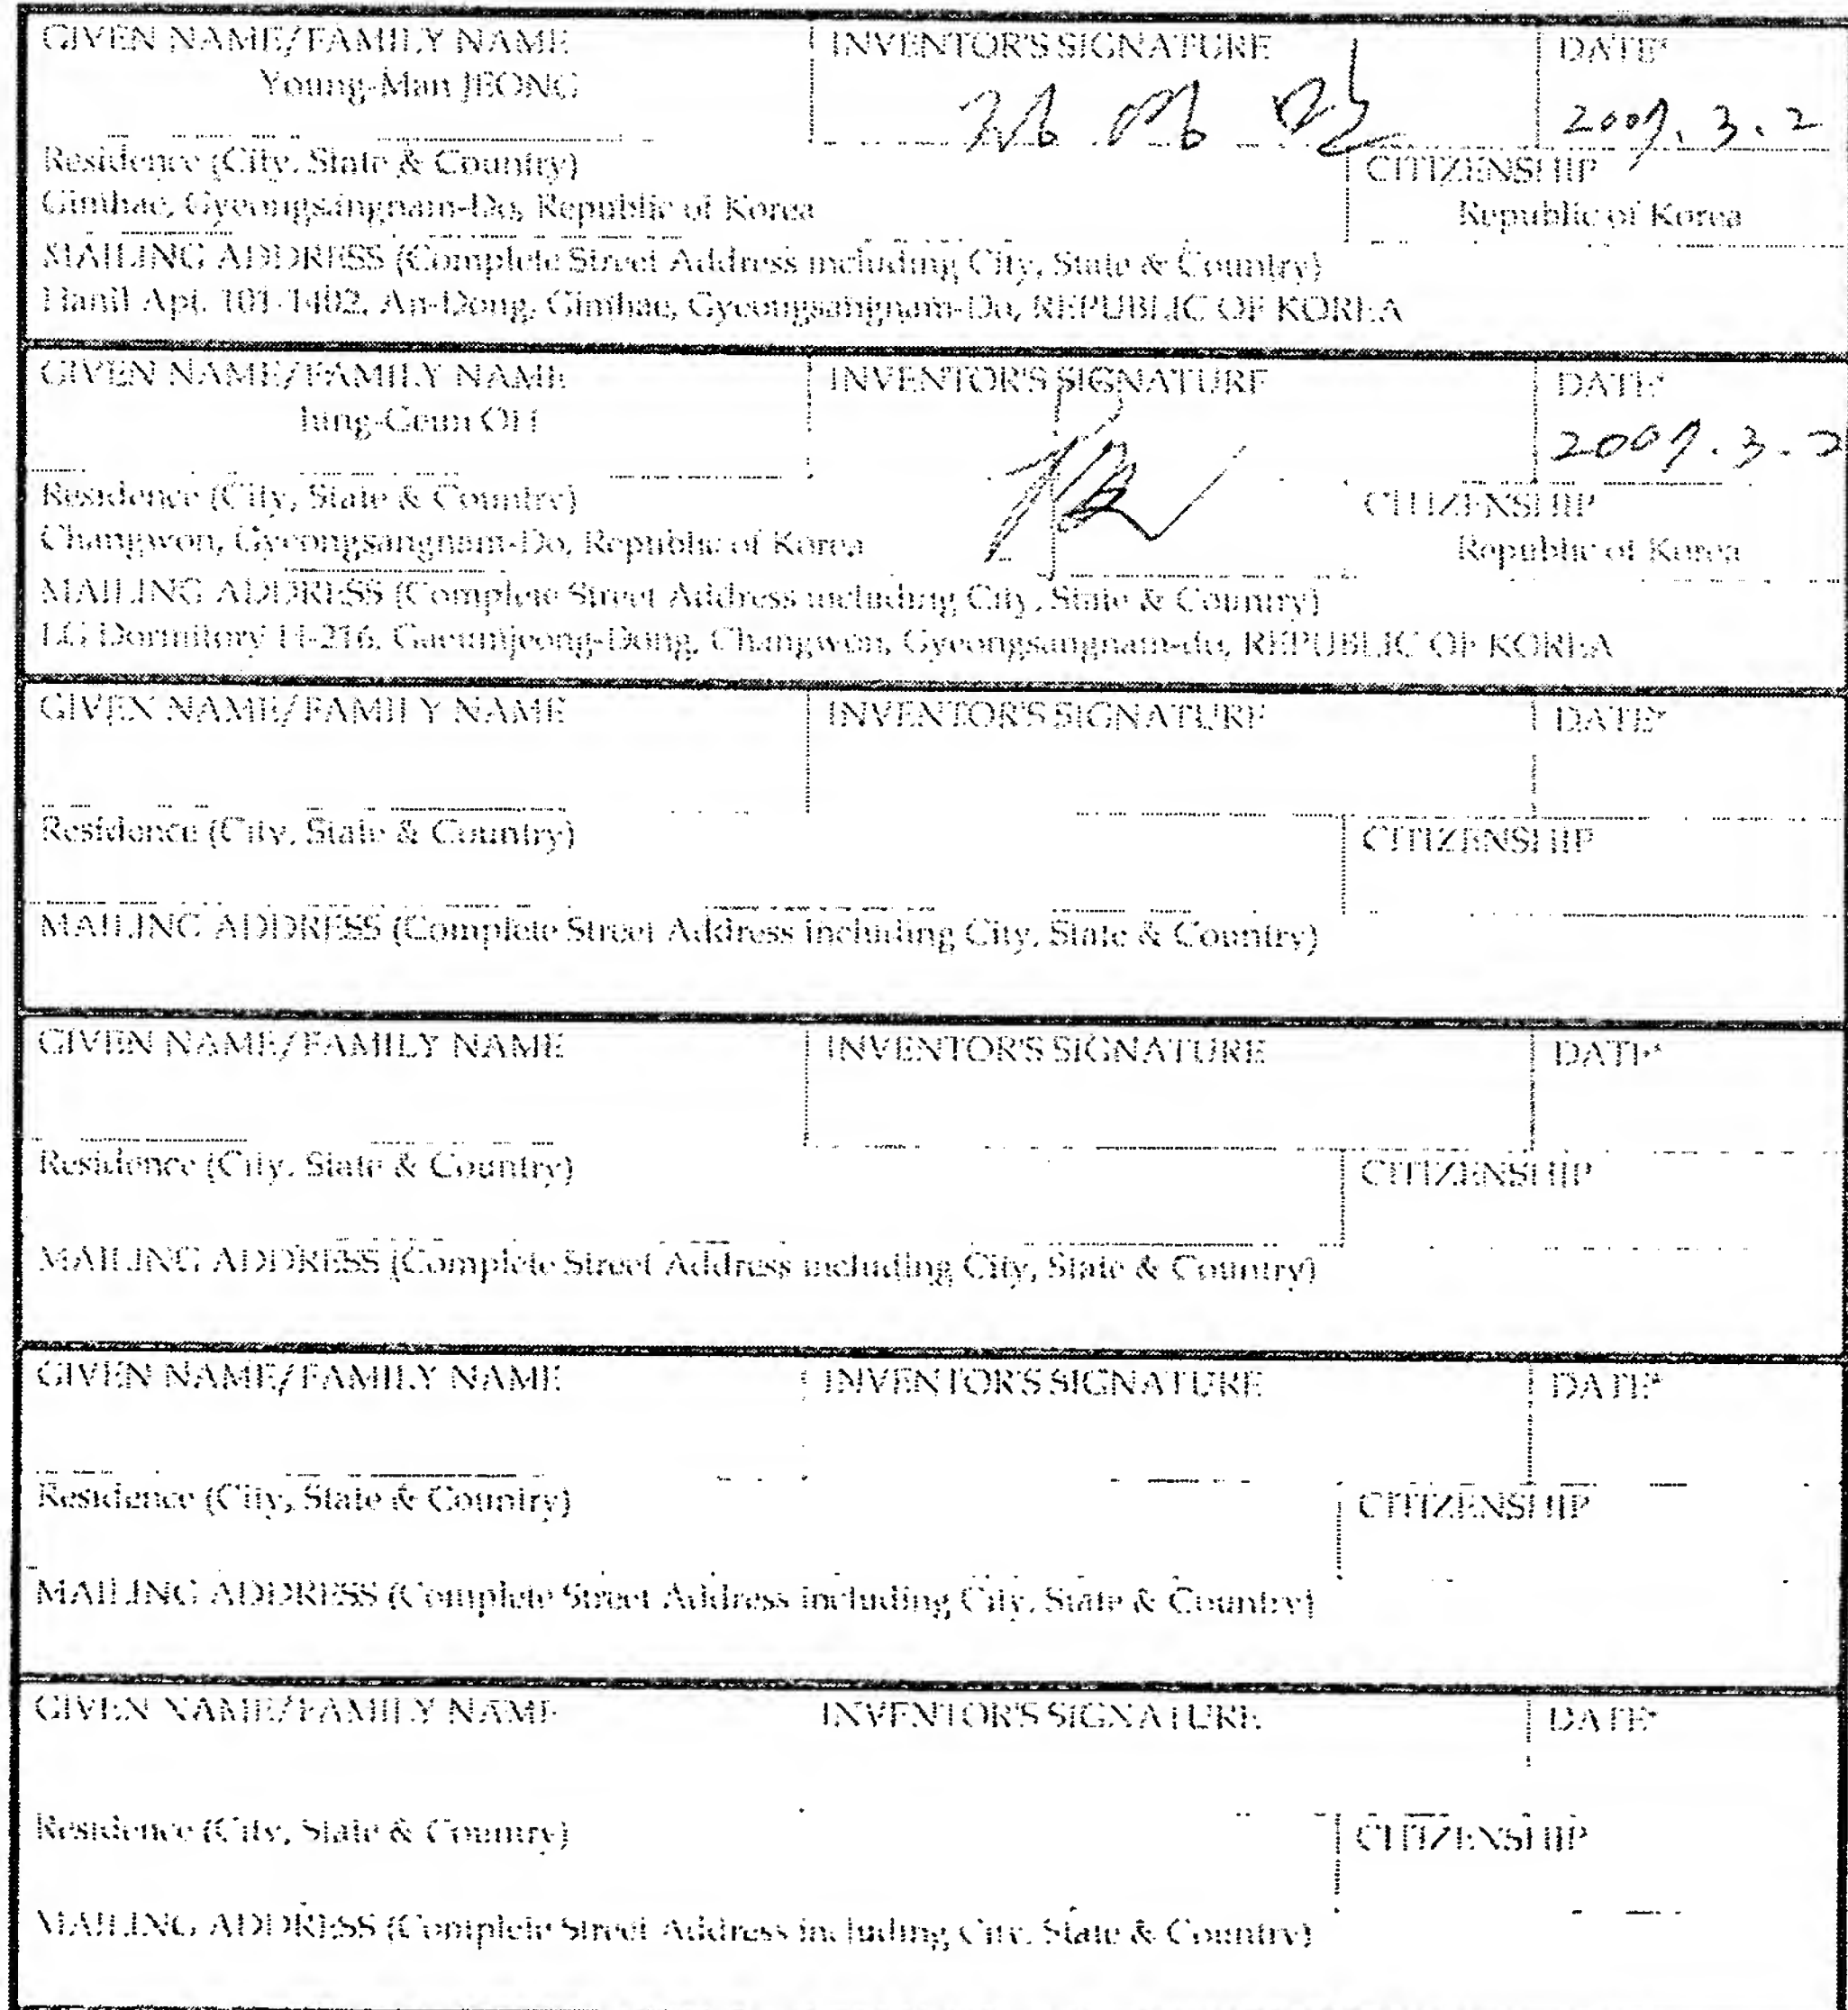 GIVEN NAME/FAMILY NAME
Young-Man JEONG
INVENTOR'S SIGNATURE
DATE*
2007. 3. 2
Residence (City, State & Country)
Gimhae, Gyeongsangnam-Do, Republic of Korea
CITIZENSHIP
Republic of Korea
MAILING ADDRESS (Complete Street Address including City, State & Country)
Hanil Apt. 101-1402, An-Dong, Gimhae, Gyeongsangnam-Do, REPUBLIC OF KOREA
GIVEN NAME/FAMILY NAME
Jung-Geun OH
INVENTOR'S SIGNATURE
DATE*
2007. 3. 2
Residence (City, State & Country)
Changwon, Gyeongsangnam-Do, Republic of Korea
CITIZENSHIP
Republic of Korea
MAILING ADDRESS (Complete Street Address including City, State & Country)
LG Dormitory H-216, Gaeumjeong-Dong, Changwon, Gyeongsangnam-do, REPUBLIC OF KOREA
GIVEN NAME/FAMILY NAME
INVENTOR'S SIGNATURE
DATE*
Residence (City, State & Country)
CITIZENSHIP
MAILING ADDRESS (Complete Street Address including City, State & Country)
GIVEN NAME/FAMILY NAME
INVENTOR'S SIGNATURE
DATE*
Residence (City, State & Country)
CITIZENSHIP
MAILING ADDRESS (Complete Street Address including City, State & Country)
GIVEN NAME/FAMILY NAME
INVENTOR'S SIGNATURE
DATE*
Residence (City, State & Country)
CITIZENSHIP
MAILING ADDRESS (Complete Street Address including City, State & Country)
GIVEN NAME/FAMILY NAME
INVENTOR'S SIGNATURE
DATE*
Residence (City, State & Country)
CITIZENSHIP
MAILING ADDRESS (Complete Street Address including City, State & Country)